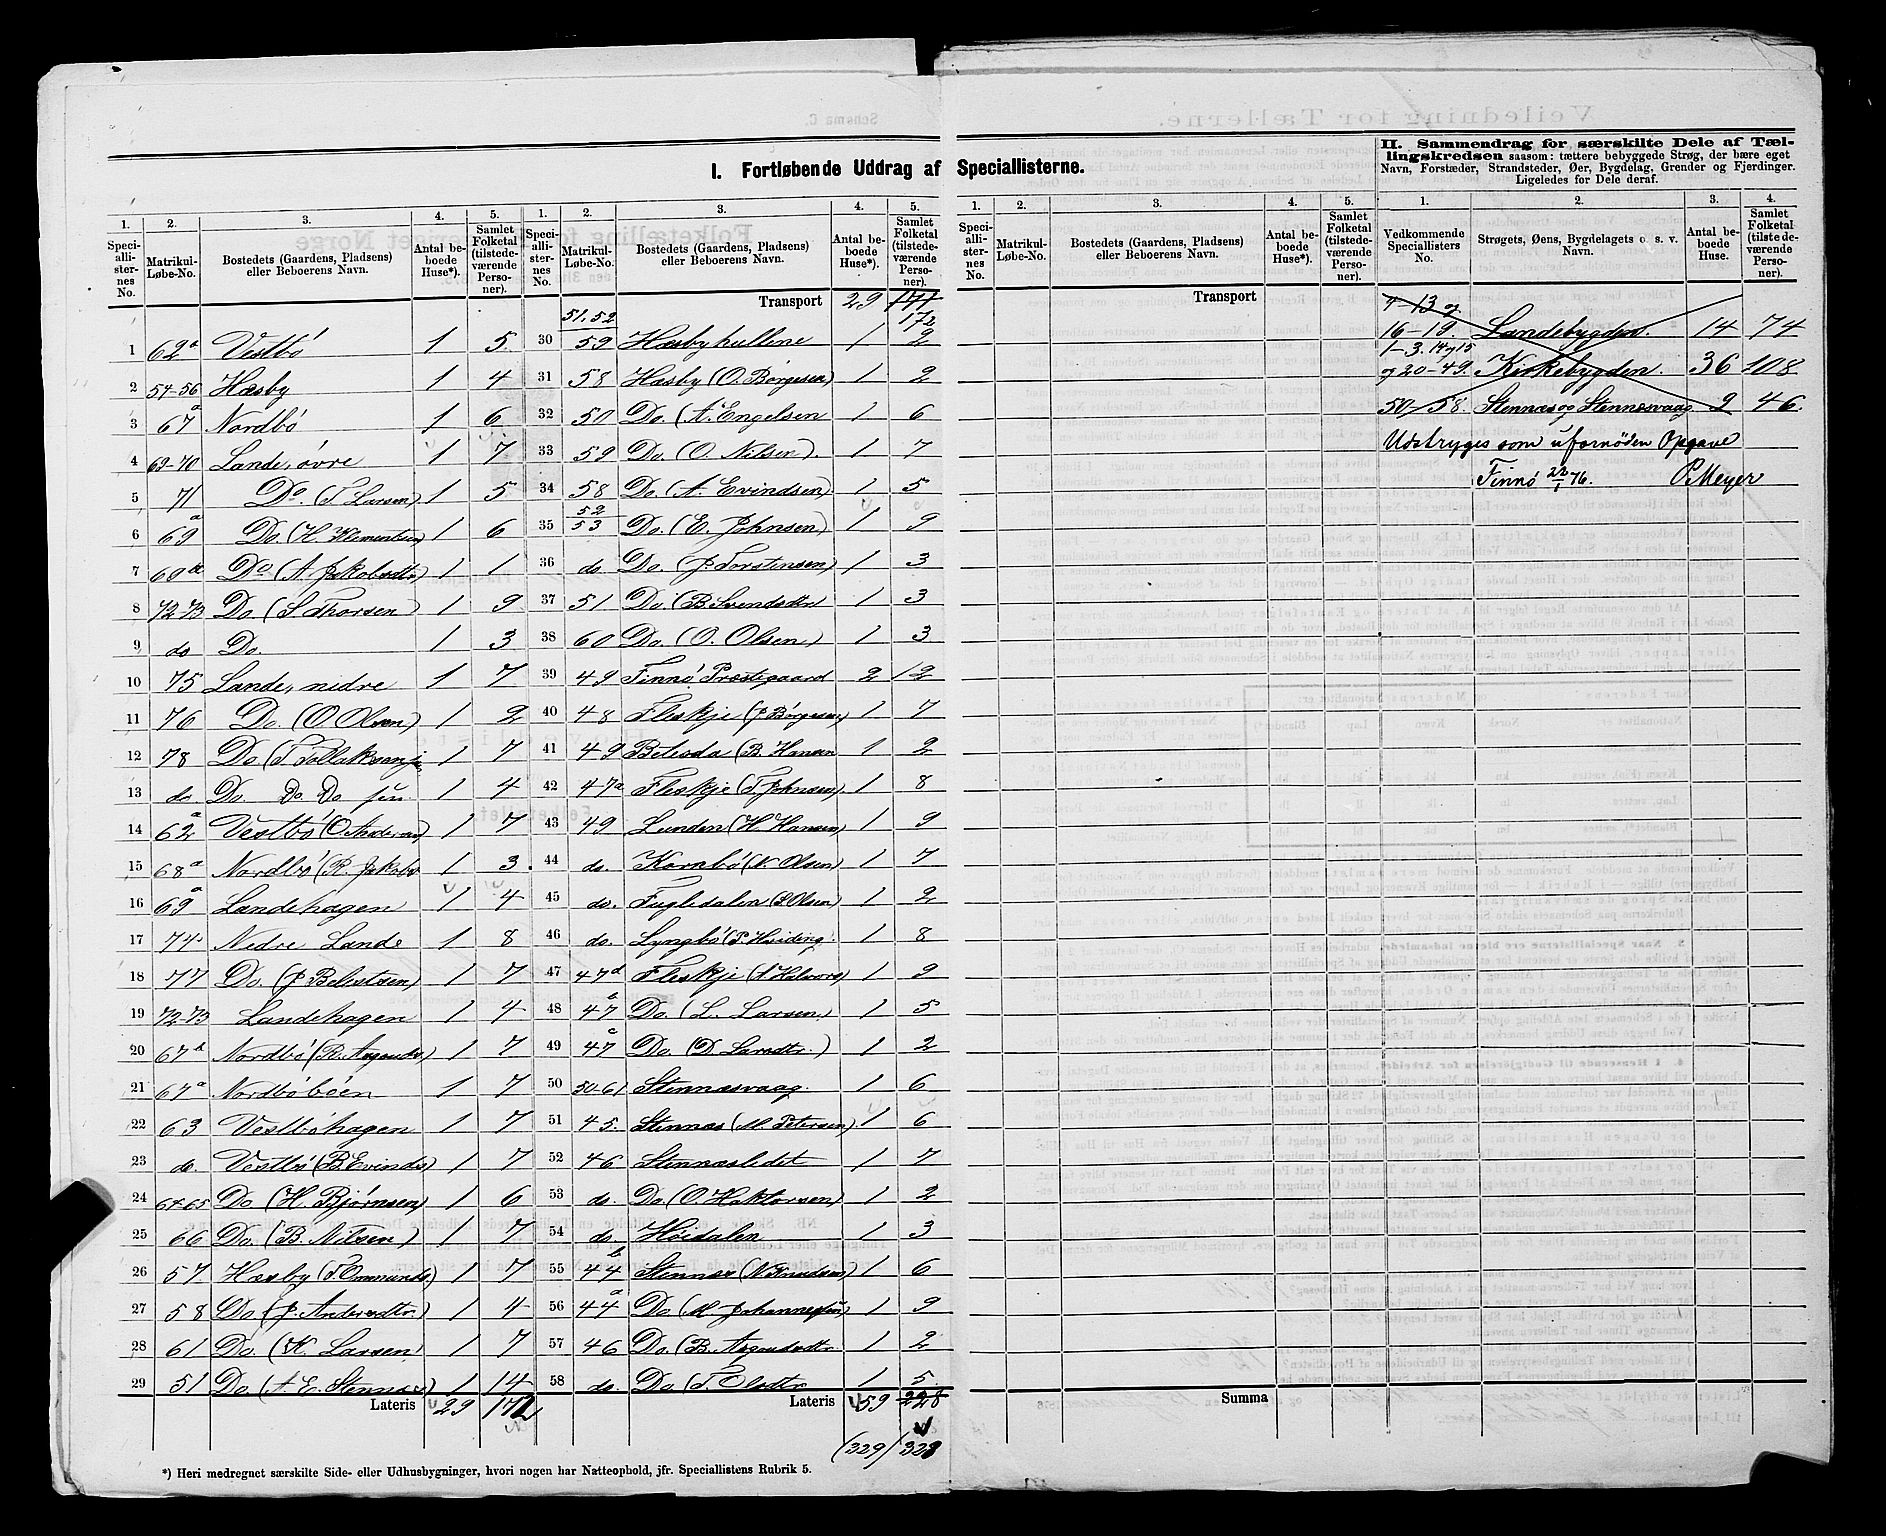 I. Fortløbende Uddrag af Speciallisterne.
1. Speciallisternes No.
2. Matrikul-Løbe-No.
3. Bostedets (Gaardens, Pladsens) eller Beboerens Navn.
4. Antal beboede Huse*).
5. Samlet Folketal (tilstedeværende Personer).
1 62a Vestbö 1 5
2 54-56 Hæsby 1 4
3 67a Nordbö 1 6
4 69-70 Lande, övre 1 7
5 71 Do. (T. Larsen) 1 5
6 69a Do. (H. Klementsen) 1 6
7 Do (A. Jakobsdtr) 1 1
8 72-73 Do. (S. Thorsen 1 9
9 do Do. 1 3
10 75 Lande, nedre 1 7
11 76 Do. (O. Olsen) 1 2
12 78 Do (T. Tollaksen 1 7
13 do. Do. Do. Do jun. 1 4
14 62a Vestbö (O. Andersen) 1 7
15 68a Nordbö (R. Jakobs 1 3
16 69a Landehagen 1 4
17 74 Nedre Lande 1 8
18 77 Do. (J. Beletsen) 1 7
19 72-73 Landehagen 1 4
20 67d Nordbö (R. Aagends.) 1 7
21 67a Nordböböen 1 7
22 63 Vestböhagen 1 7
23 do. Vestbö (B. Evinds) 1 7
24 64-65 Do. (H. Bjørnsen) 1 6
25 66 Do. (B. Nilsen) 1 7
26 57 Hæsby (T. Ommunds.) 1 7
27 58 Do (J. Andersdtr.) 1 4
28 61 Do. (K. Larsen) 1 7
29 51 Do. (A. E. Stennæs) 1 14
Lateris 29 172
1. Speciallisternes No.
2. Matrikul-Løbe-No.
3. Bostedets (Gaardens, Pladsens) eller Beboerens Navn.
4. Antal beboede Huse*).
5. Samlet Folketal (tilstedeværende Personer).
Transport 29 171 172
30 51.52 59 Hæsbyhullene 1 2
31 58 Hæsby (O. Börgesen) 1 2
32 50 Do. (A. Engelsen 1 6
33 59 Do. (O. Nilsen). 1 7
34 58 Do. (A. Evindsen) 1 5
35 52 53 Do. (E. Johnsen) 1 9
36 do Do. (J. Torstensen) 1 3
37 51 Do. (B. Svendsdtr 1 3
38 60 Do. (O. Olsen) 1 3
39 49 Finnö Præstegaard 2 12
40 48 Fleskje (J. Börgesen) 1 7
41 49 Betesda (B. Hansen 1 2
42 47a Fleskje (T. Johnsen) 1 8
43 49 Lunden (H. Hansen) 1 9
44 do. Kornbö (N. Olsen) 1 7
45 do. Fugledalen (S. Olsen) 1 2
46 do. Lyngbö (P. Heiding) 1 8
47 47d Fleskje (S. Halvors) 1 9
48 47a Do. (L. Larsen) 1 5
49 47c Do. (D. Larsdtr.) 1 2
50 50-61 Stennæsvaag 1 6
51 45. Stennæs (M. Petersen) 1 6
52 46 Stennæsledet 1 7
53 do. Do. (O. Haktorsen) 1 2
54 do. Höidalen 1 3
55 44b Stennæs (N. Knudsen) 1 6
56 44a Do. (M. Johannessen) 1 9
57 46 Do. (B. Aagendsdtr 1 2
58 do. Do. (T. Olsdtr 1 5
Lateris 59 328
(329) 328
*) Heri medregnet særskilte Side- eller Udhusbygninger, hvori nogen har Natteophold, jfr. Speciallistens Rubrik 5.
1. Speciallisternes No.
2. Matrikul-Løbe-No.
3. Bostedets (Gaardens, Pladsens) eller Beboerens Navn.
4. Antal beboede Huse*).
5. Samlet Folketal (tilstedeværende Personer).
Transport
Summa
II. Sammendrag for særskilte Dele af Tællingskredsen saasom: tættere bebyggede Strøg, der bære eget Navn, Forstæder, Strandsteder, Øer, Bygdelag, Grender og Fjerdinger. Ligeledes for Dele deraf.
1. Vedkommende Speciallisters No.
2. Strøgets, Øens, Bygdelagets o. s. v. Navn.
3. Antal beboede Huse.
4. Samlet Folketal (tilstedeværende Personer).
4-13 og 16-19 Landebygden. 14 74
1-3. 14 og 15 og 20-49. Kirkebygden. 36 108
50-58. Stennæs og Stennæsvaag 9 46.
Udstryges som ufornöden Opgave
Finnö 22/1 76. P. Meyer